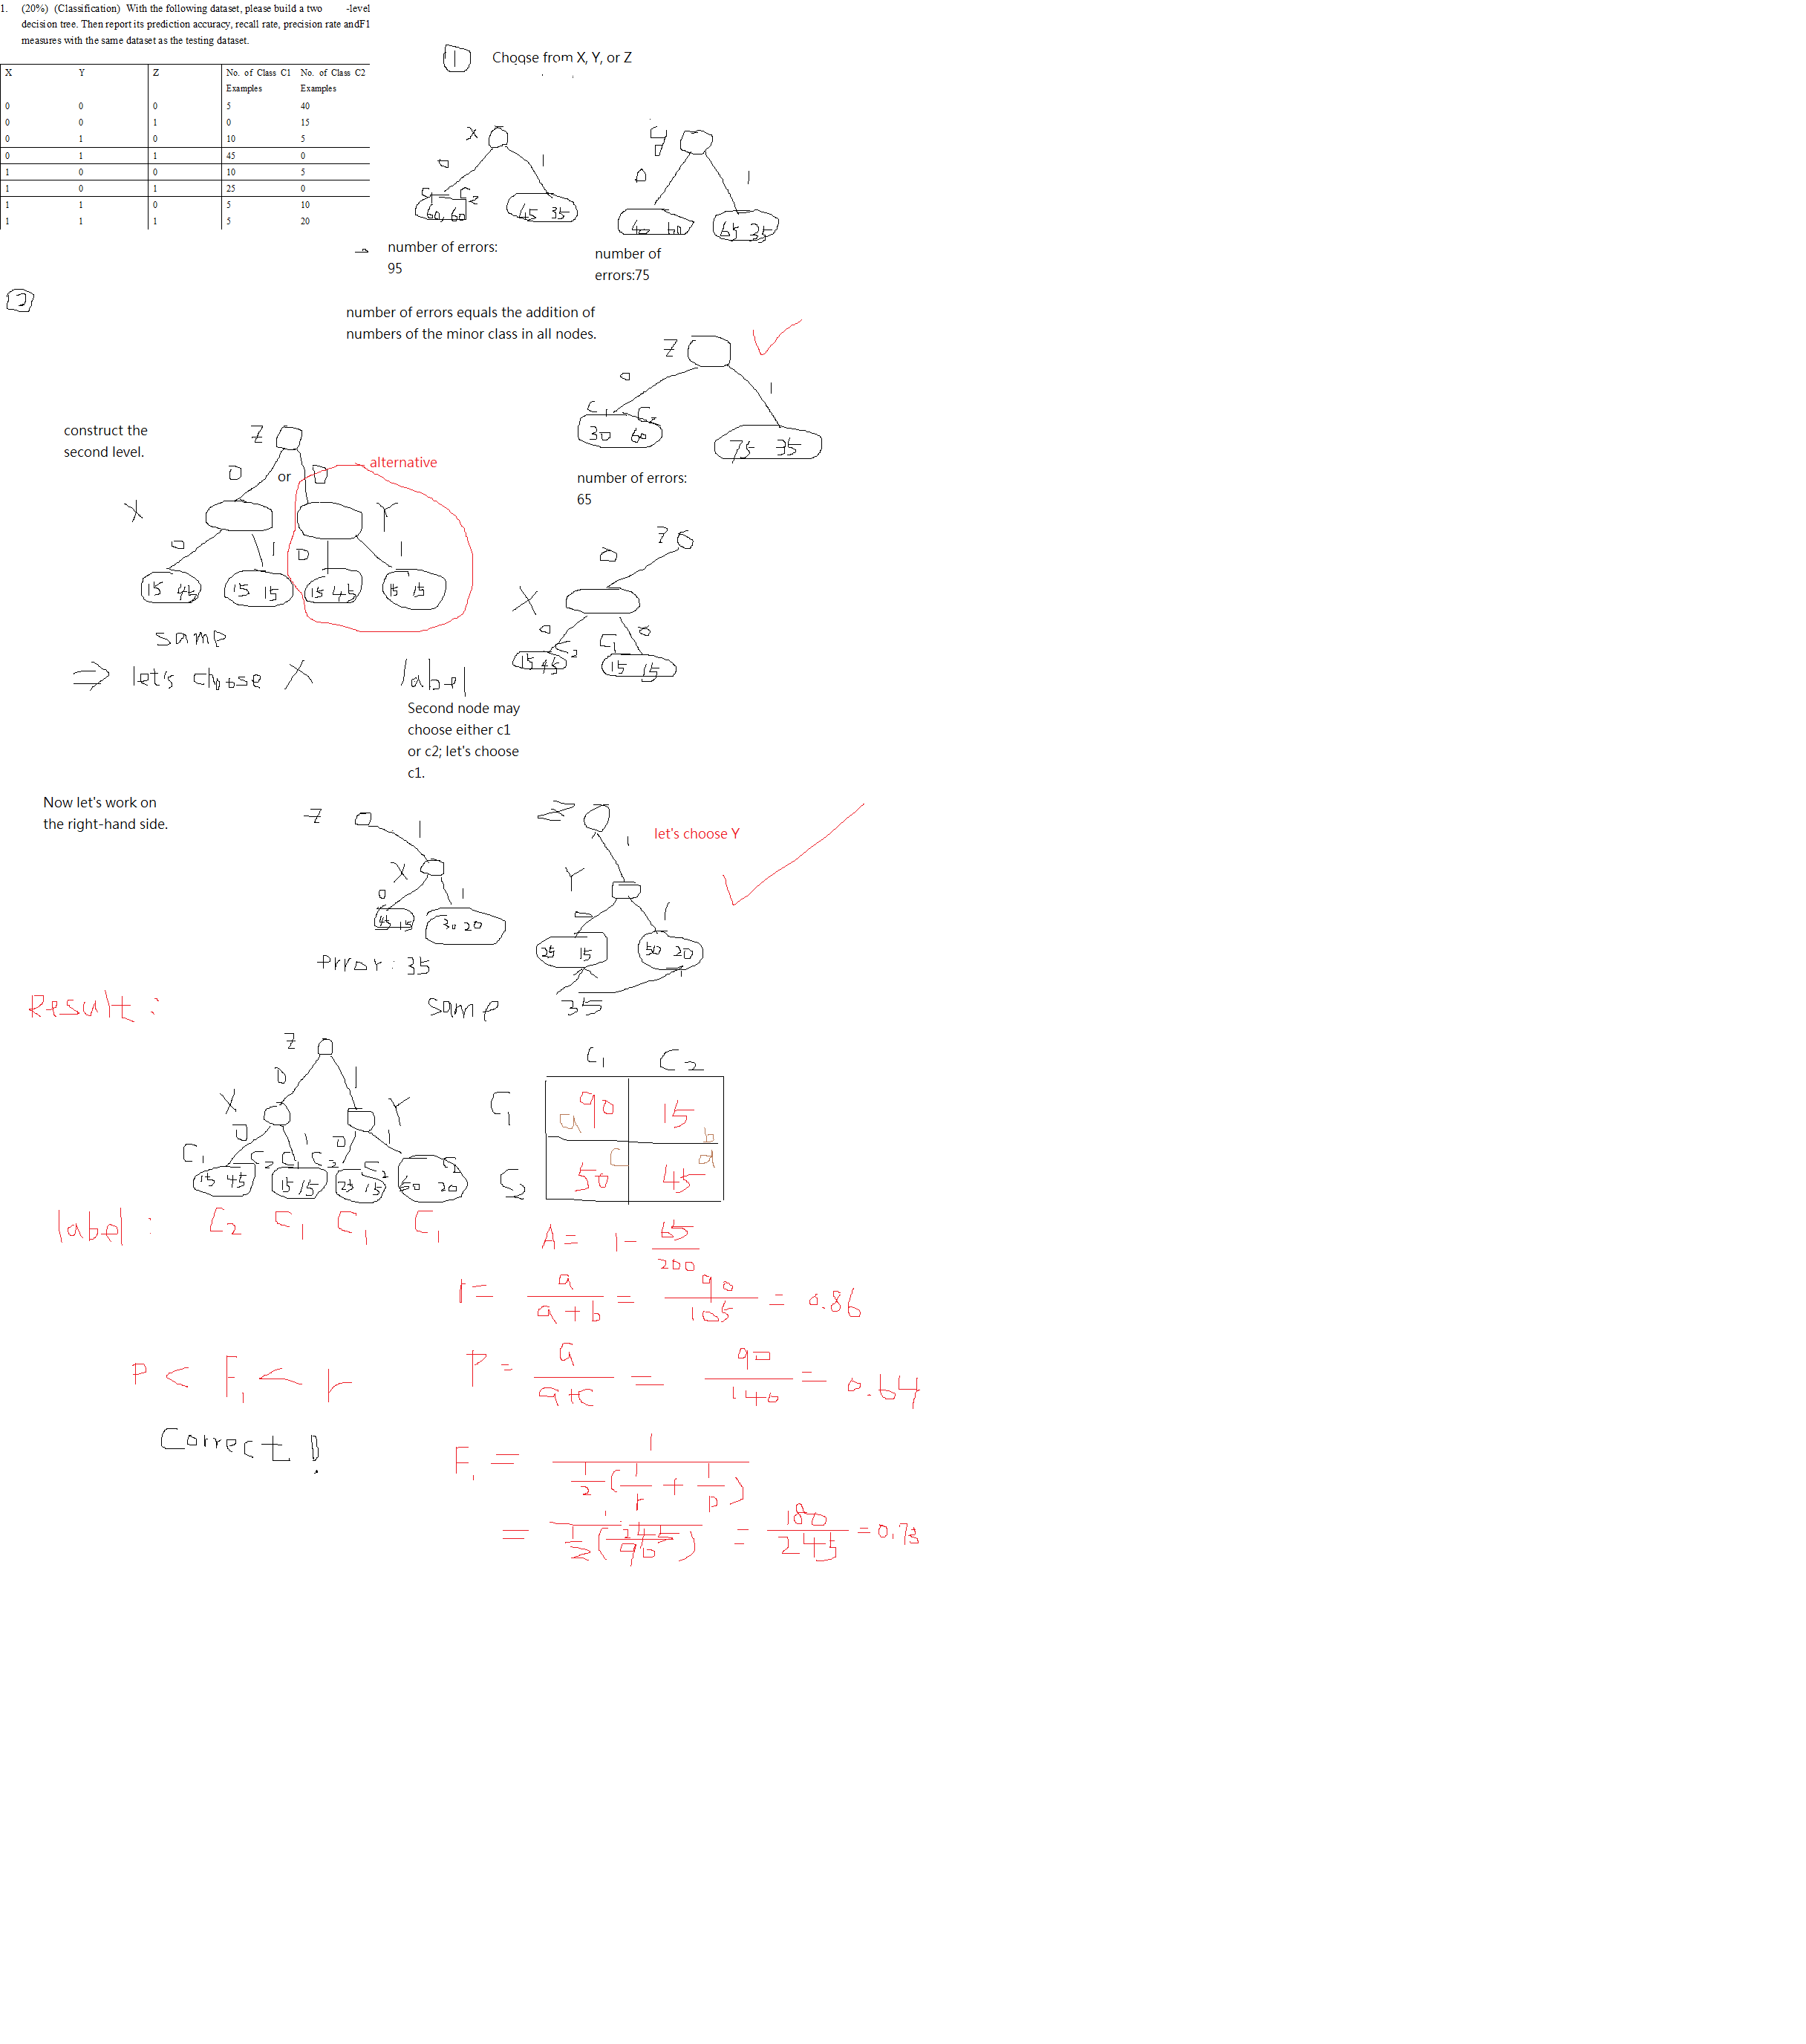 1. (20%) (Classification) With the following dataset, please build a two -level
decision tree. Then report its prediction accuracy, recall rate, precision rate andF1
measures with the same dataset as the testing dataset.
X Y Z No. of Class C1 Examples No. of Class C2 Examples
0 0 0 5 40
0 0 1 0 15
0 1 0 10 5
0 1 1 45 0
1 0 0 10 5
1 0 1 25 0
1 1 0 5 10
1 1 1 5 20
1 Choose from X, Y, or Z
X
0 1
C1 C2
60, 60 45 35
number of errors:
95
y
0 1
40 60 65 35
number of
errors:75
2
number of errors equals the addition of
numbers of the minor class in all nodes.
Z
0 1
C1 C2
30 60 75 35
number of errors:
65
construct the
second level.
Z
0 or 0
alternative
X Y
0 1 0 1
15 45 15 15 15 45 15 15
same
⇒ let's choose X
Z
0
X
0 0
C2 C1
15 45 15 15
label
Second node may
choose either c1
or c2; let's choose
c1.
Now let's work on
the right-hand side.
Z
1
X
0 1
45 15 30 20
error: 35
Z
1
let's choose Y
Y
0 1
25 15 50 20
same 35
Result:
Z
0 1
X Y
0 1 0 1
C1 C2 C1 C2 C2 C2
15 45 15 15 25 15 50 20
label: C2 C1 C1 C1
C1 C2
C1 a 90 15 b
C2 50 c 45 d
A = 1 - 65/200
r = a/(a+b) = 90/105 = 0.86
P = a/(a+c) = 90/140 = 0.64
P < F1 < r
Correct!
F1 = 1/(1/2(1/r + 1/p))
= 1/(1/2(245/90)) = 180/245 = 0.73